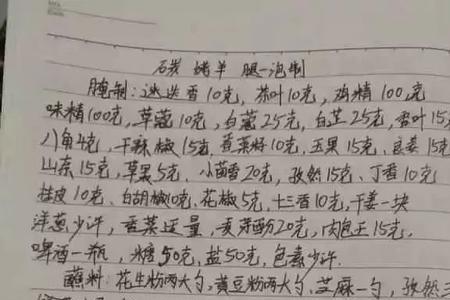 碳烤羊腿一泡制
腌制：迷迭香10克，茶叶10克，鸡精100克
味精100克，草蔻10克，白蔻25克，白芷25克，香叶15
八角4克，干辣椒15克，香菜籽10克，玉果15克，良姜15克
山奈15克，草果5克，小茴香20克，孜然15克，丁香10克
桂皮10克，白胡椒10克，花椒5克，十三香10克，干姜一块
洋葱少许，香菜适量，麦芽酚20克，肉包王15克，
啤酒一瓶，米糖50克，盐50克，色素少许.
蘸料：花生粉两大勺，黄豆粉两大勺，芝麻一勺，孜然